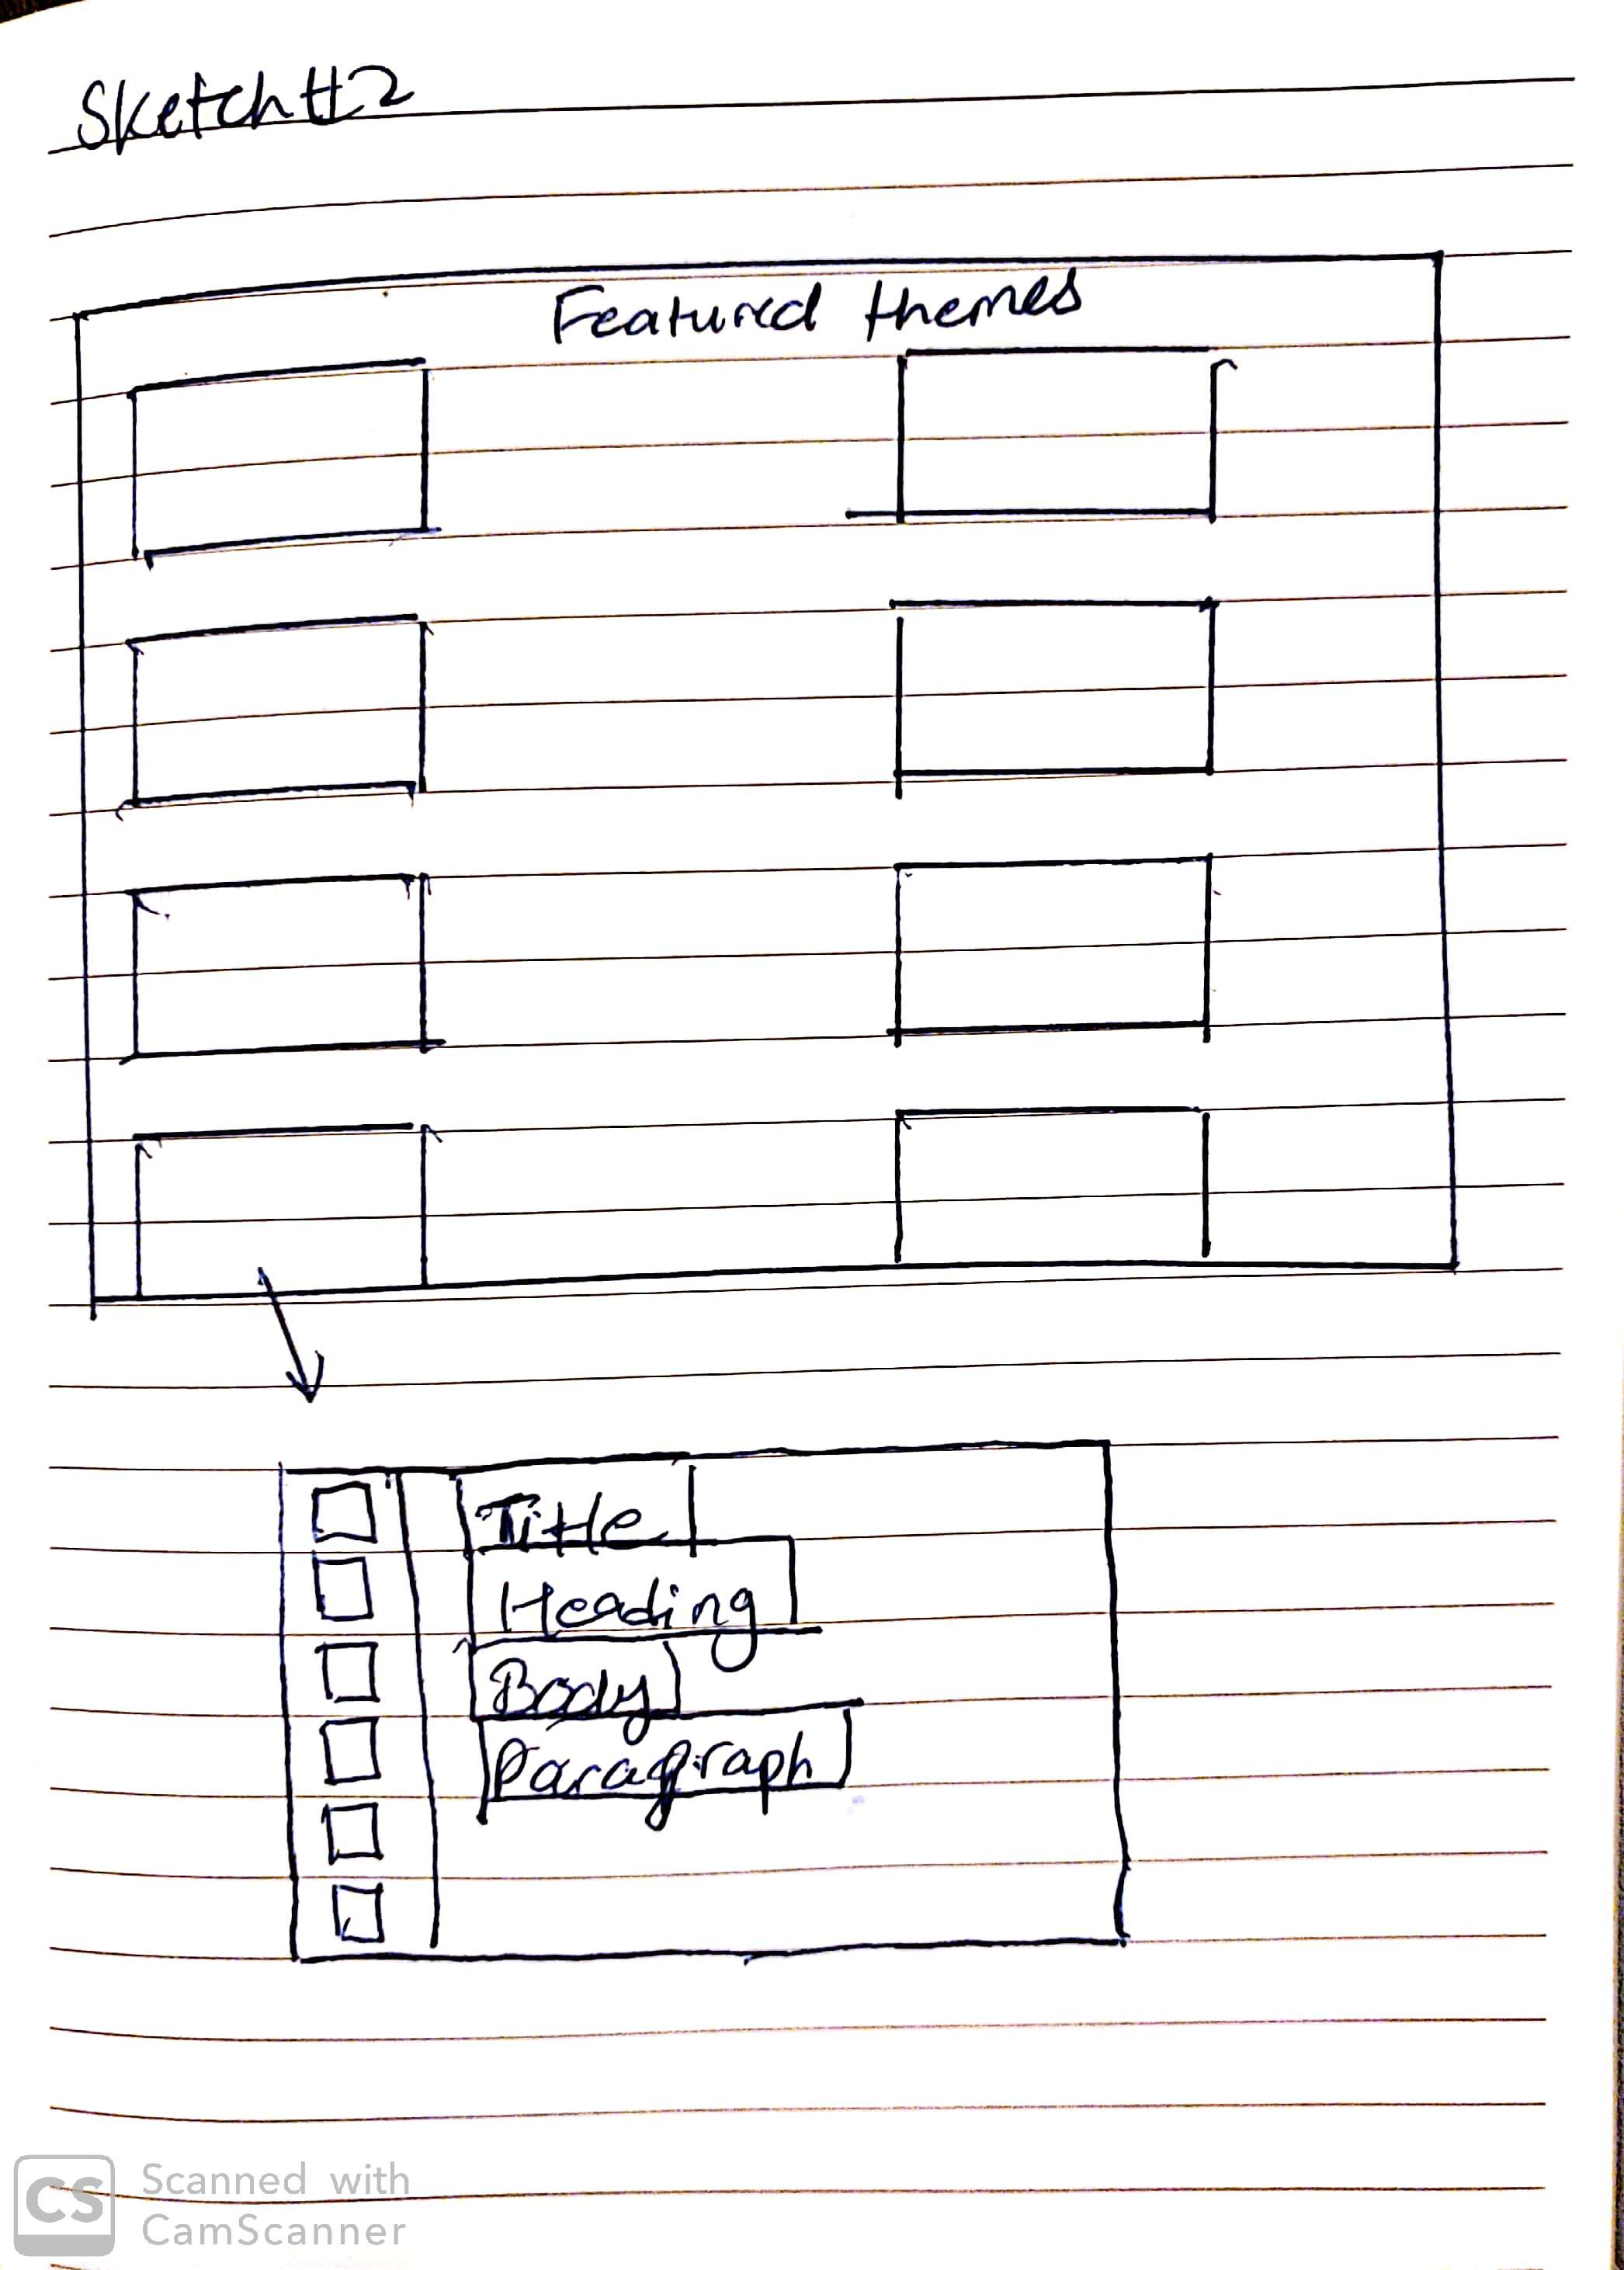 Sketch#2
Featured themes
Title
Heading
Body
Paragraph
CS
Scanned with
CamScanner